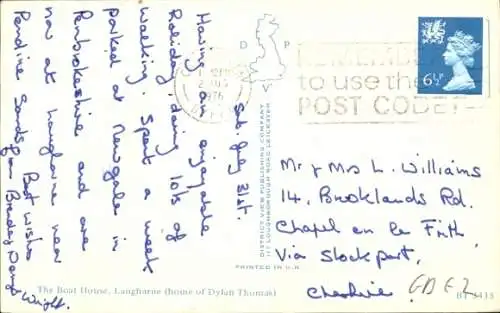 Sat. July 31st.
Having an enjoyable
Holiday doing lots of
walking. Spent a week
parked at Newgale in
Pembrokeshire and are
now at Laugharne near
Pendine Sands
Best Wishes
from
Wright.
D P
V
1976
REMEMBER
to use the
POST CODE
6½P
DISTRICT VIEW PUBLISHING COMPANY
LOUGHBOROUGH ROAD LEICESTER
PRINTED IN U.K
Mr & Mrs L. Williams
14, Brooklands Rd.
Chapel en le Frith
Via Stockport,
Cheshire.
The Boat House, Laugharne (home of Dylan Thomas)
BT 3418